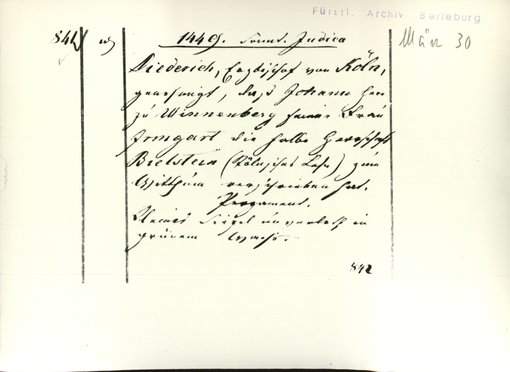 Fürstl. Archiv Berleburg
841 1449. Sonnt. Judica März 30
Diederich, Erzbischof von Köln,
genehmigt, daß Johann Herr
zu Winnenberg seiner Frau
Irmgart die halbe Herrschaft
Bielstein (Kölnisches Lehn) zum
Witthum verschrieben hat.
Pergament.
Kleines Siegel unverletzt in
grünem Wachs.
842